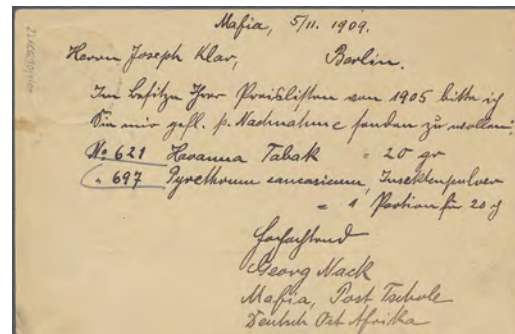 Mafia, 5/11. 1909.
Herrn Joseph Klar,
Berlin.
Im Besitze Ihrer Preislisten von 1905 bitte ich
Sie mir gefl. p. Nachnahme senden zu wollen:
No 621 Havanna Tabak = 20 gr
" 697 Pyrethrum caucasicum, Insektenpulver
= 1 Portion für 20 d
Hochachtend
Georg Nack
Mafia, Post Tschole
Deutsch Ost Afrika